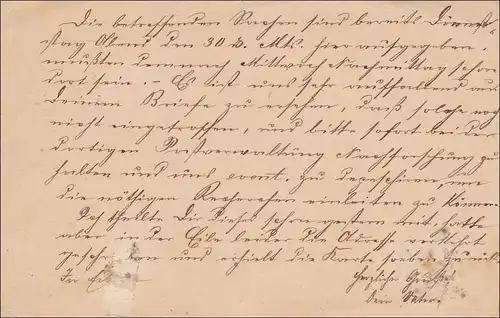 Die betreffenden Sachen sind bereits Diens-
tag Abend den 30 d. Mts. hier aufgegeben,
mußten demnach Mittwoch Nachmittag schon
dort sein. - Es ist uns sehr auffallend aus
Deinem Briefe zu ersehen, daß solche noch
nicht eingetroffen, und bitte sofort bei der
dortigen Postverwaltung Nachforschung zu
halten und uns event. zu depeschiren, um
die nöthigen Recherchen einleiten zu können.
Ich theilte Dir dieses schon gestern mit, hatte
aber in der Eile leider die Adresse verkehrt
geschrieben und erhielt die Karte soeben zurück.
In Eile
Herzliche Grüße
Dein Vater.